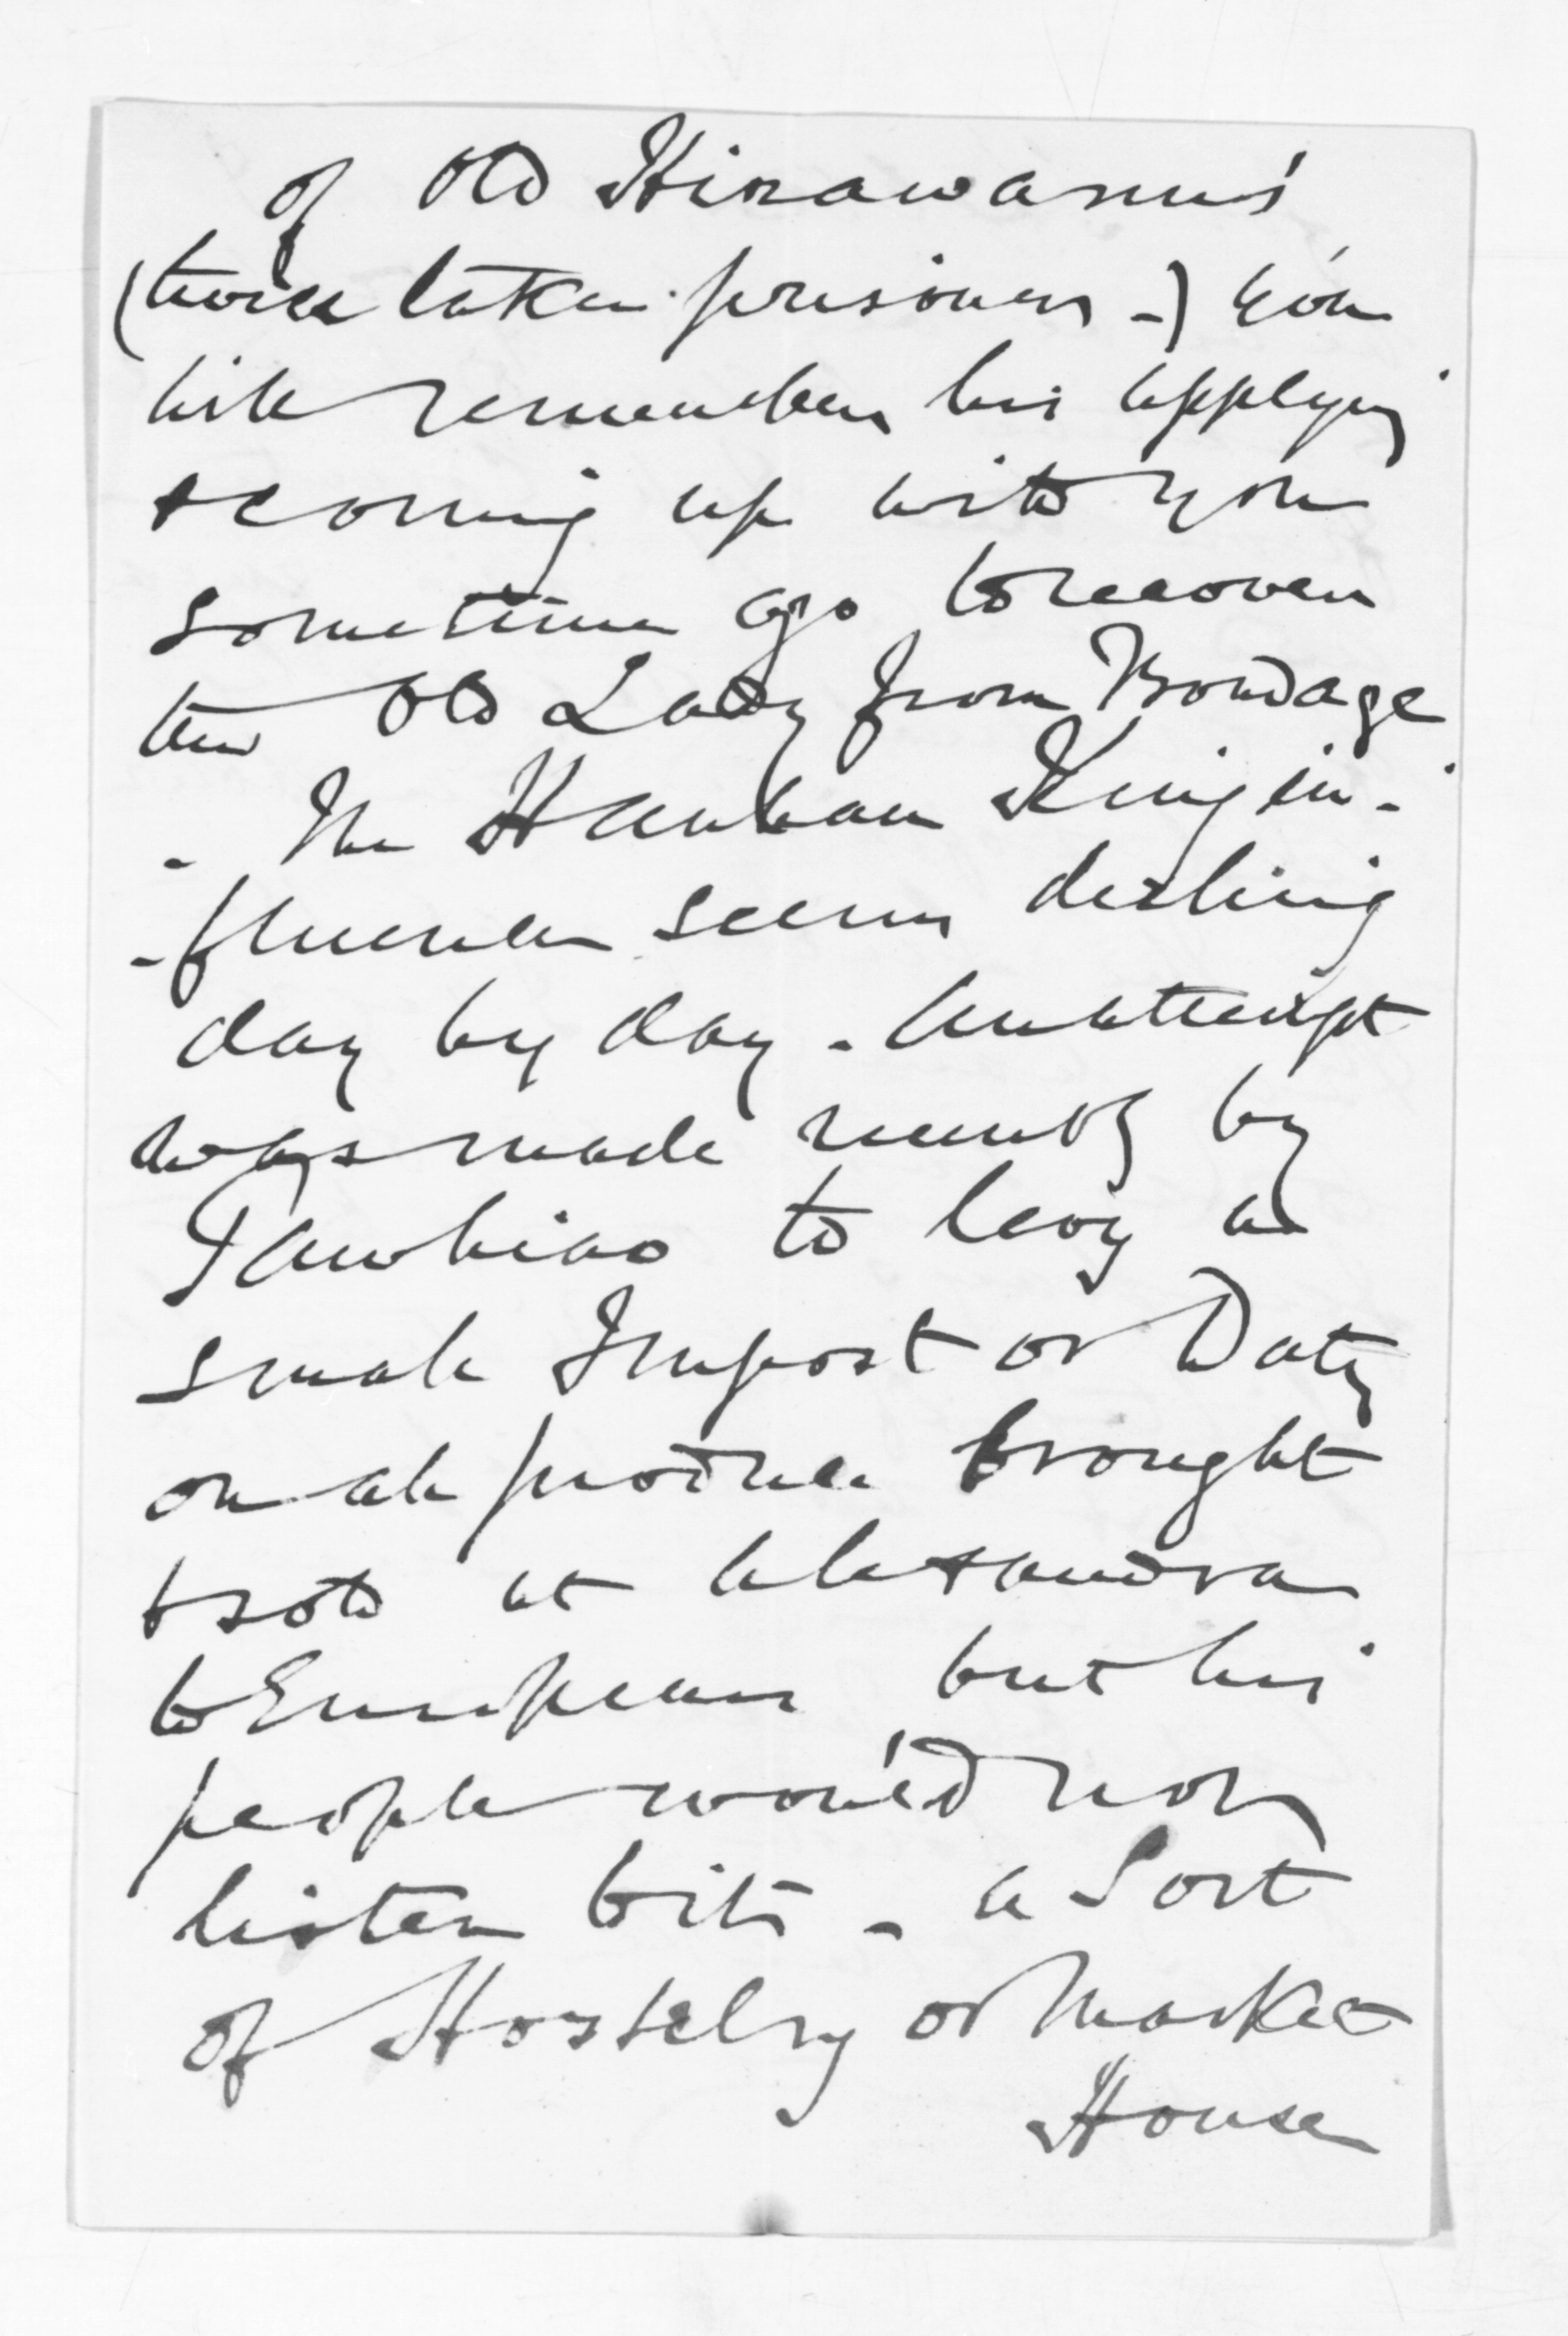 of Old Hirawanu's
(twice taken prisoner -) you
will remember his applying
& coming up with you
sometime ago to recover
the Old Lady from Bondage
- The Hauhau King in-
-fluence seems decling
day by day - An attempt
was made recently by
Tawhiao to levy a
small Impost or Duty
on all produce brought
& sold at Alexandra
to Europeans but his
people would not
listen to it - a Sort
of Hostelry or Market
House